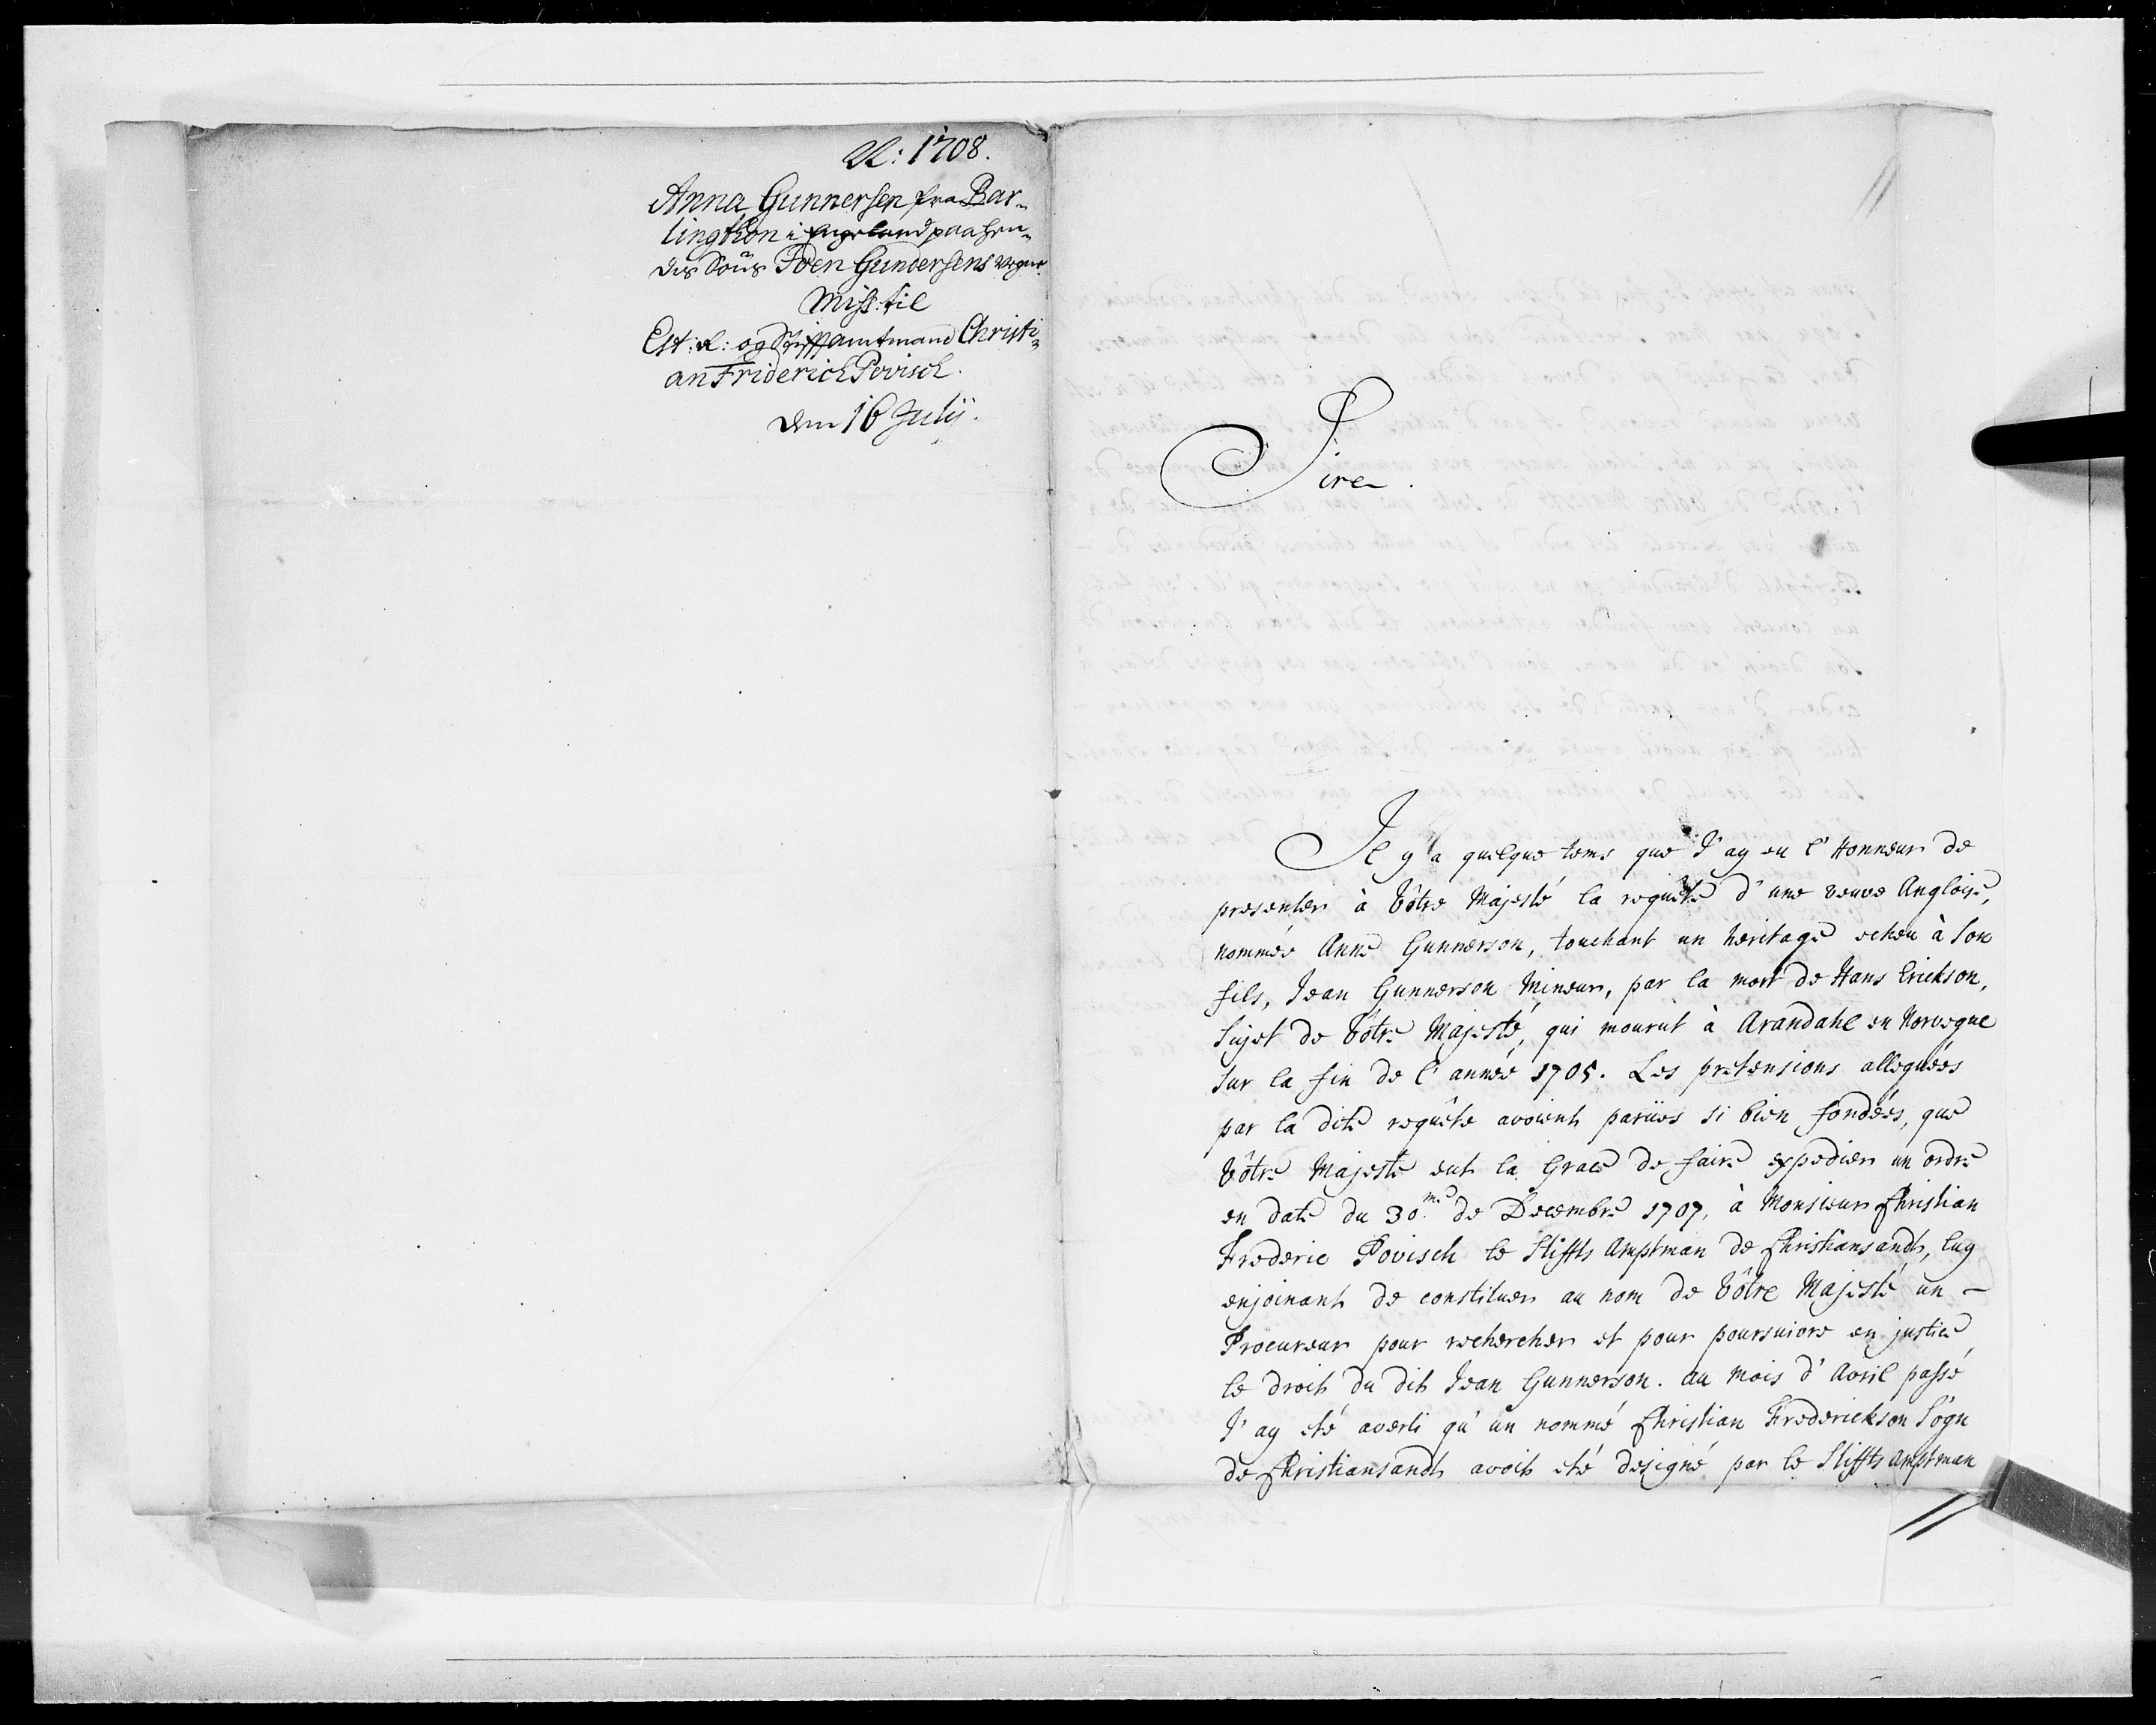 A: 1708.
Anna Gunnersen fra Bar-
lingthon i Engeland paa hen-
des Søns Joen Gundersens vegne.
Miss: til
Est: R: og Stifftamtmand Christi-
an Friderich Povisch.
den 16 Julij.
Sire.
Il y a quelque tems que J'ay eu l'Honneur de
presenter à Vôtre Majesté la requête d'une veuve Angloise,
nommée Anne Gunnerson, touchant un heritage echeu à son
fils, Jean Gunnerson Mineur, par la mort de Hans Erickson,
Sujet de Vôtre Majesté, qui mourut à Arandahl en Norvegue
sur la fin de l'année 1705. Les pretensions alleguées
par la dite requête avoient parües si bien fondées, que
Vôtre Majesté eut la Grace de faire expedier un ordre
en date du 30.me de Decembre 1707, à Monsieur Christian
Frederic Povisch le Stiffts Amptman de Christiansandt, luy
enjoinant de constituer au nom de Vôtre Majesté un -
Procureur pour rechercher et pour poursuivre en justice
le droit du dit Jean Gunnerson. Au mois d'Avril passé
J'ay eté averti qu'un nommé Christian Frederickson Sógn
de Christiansandt avoit eté designé par le Stiffts Amptman